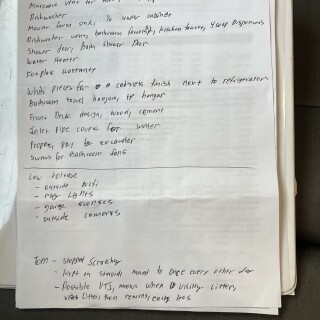 Microwave vent for
Dishwasher
farm sink, is under cabinet
Dishwasher vent, bathroom faucet, kitchen faucet, soap dispensers
Shower door, Bath Shower Door
Water Heater
Fireplace Warranty
White pieces for cabinets finish next to refrigerator
Bathroom towel hangers, tp hanger
Front Deck design, wood, cement
Inlet Pipe covers for water
Propane, pay for excavator
Screws for Bathroom fans
Low Voltage
- outside Wifi
- Lights
- garage sconces
- outside cameras
Tom - stopped scratching
- Kept on steroids moved to once every other day
- Possible UTI, meows when visiting litter,
litter then cleaning,